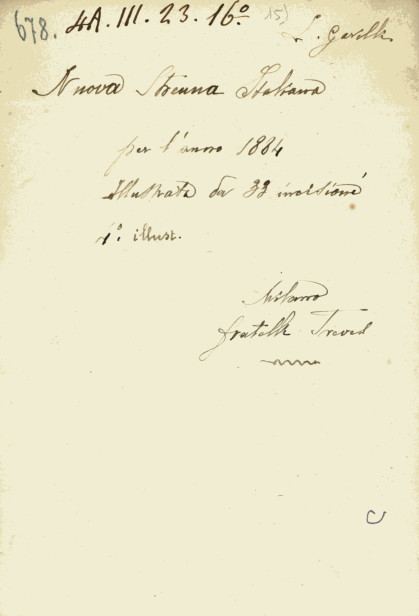 678. 4A. III. 23. 16º 15)
L. Gavelli
Nuova Strenna Italiana
per l'anno 1884
Illustrata da 33 incisioni
1º. illust.
Milano
fratelli Treves
C